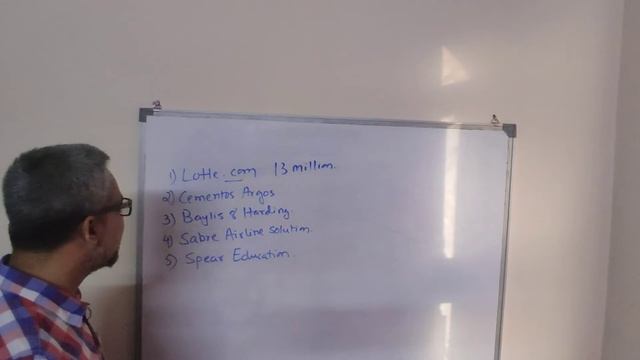 1) Lotte.com 13 million.
2) Cementos Argos
3) Baylis & Harding
4) Sabre Airline solution.
5) Spear Education.